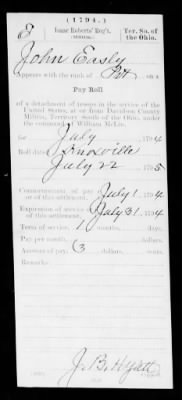 (1794.)
E Isaac Roberts' Reg't. Ter. So. of the Ohio.
John Easly
Appears with the rank of Pvt. on a
Pay Roll
of a detachment of troops in the service of the
United States, at or from Davidson County
Militia, Territory South of the Ohio, under
the command of William McLin,
for July 1794
Roll dated Knoxville
July 22 1795
Commencement of pay of this settlement, July 1 1794
Expiration of service of this settlement, July 31 1794
Term of service, 1 months, days.
Pay per month, dollars.
Amount of pay, (3 dollars, cents.
Remarks:
J. B. Hyatt